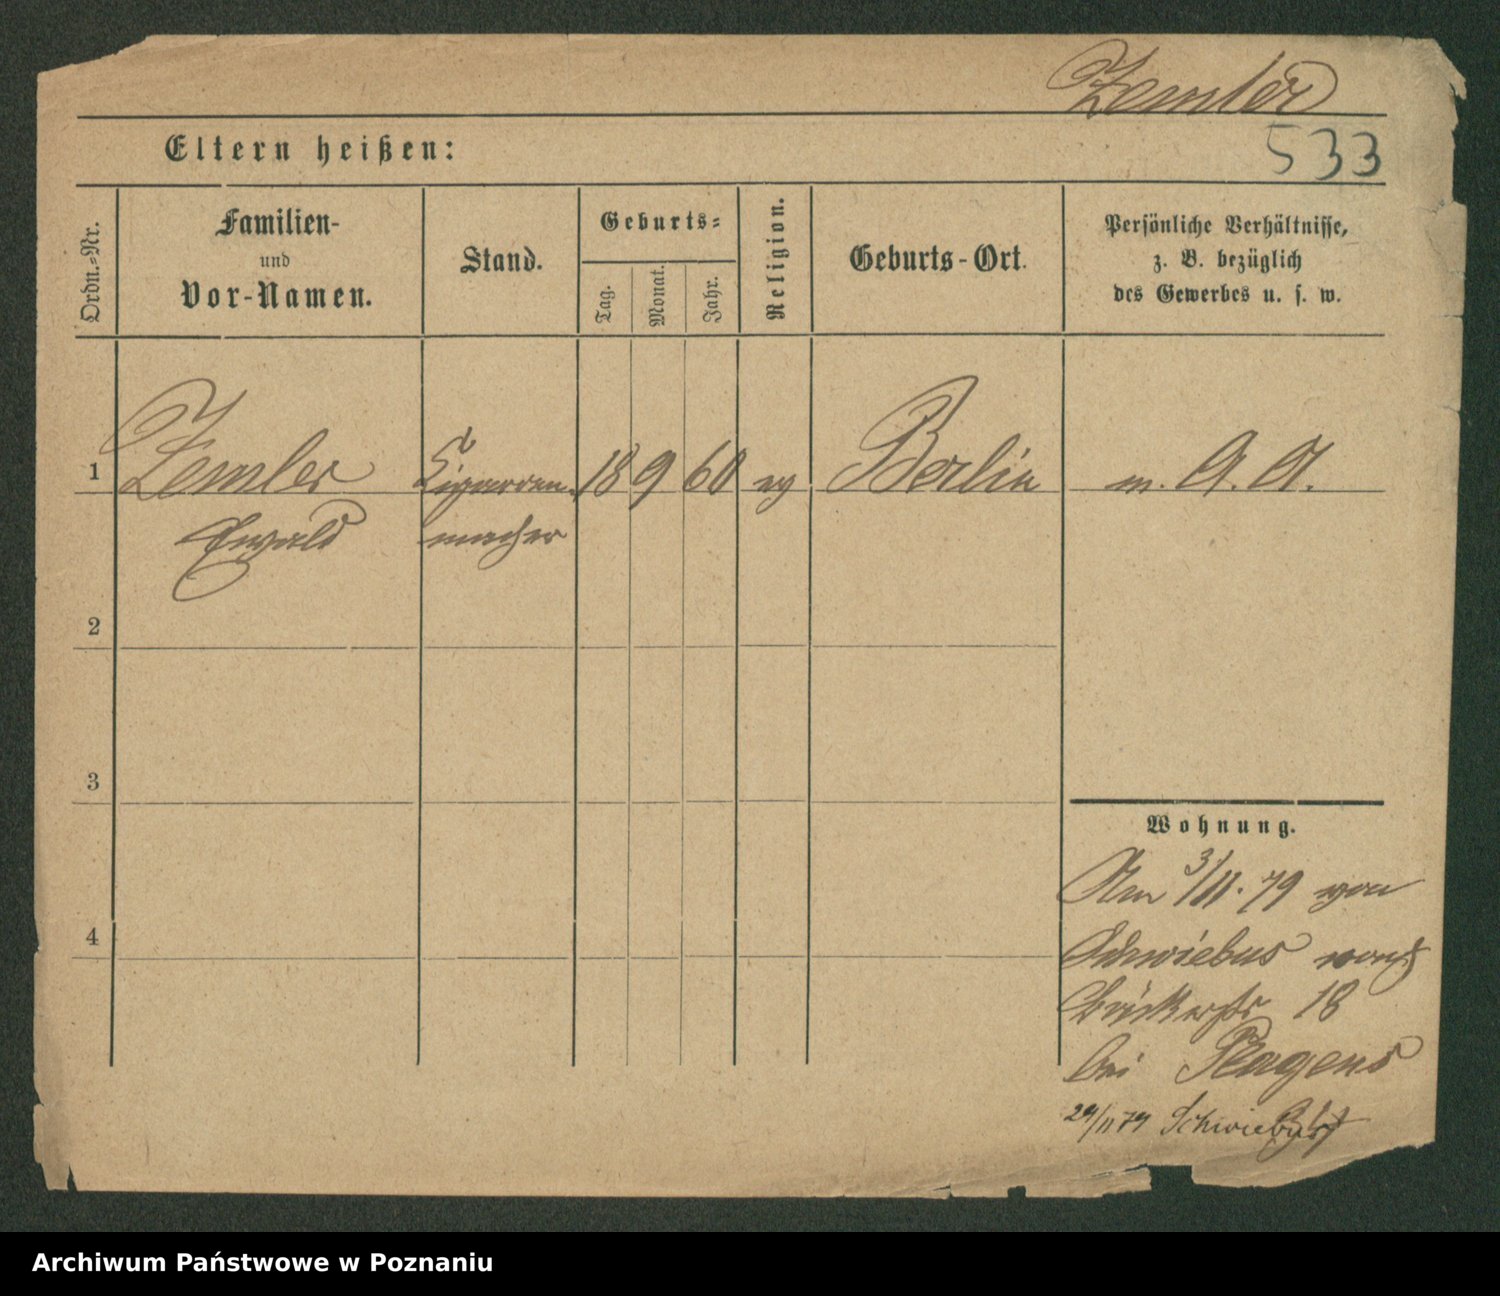 Zemler
Eltern heißen:
533
Ordn.-Nr.
Familien-
und
Vor-Namen.
Stand.
Geburts-
Tag.
Monat.
Jahr.
Religion.
Geburts-Ort.
Persönliche Verhältnisse,
z. B. bezüglich
des Gewerbes u. s. w.
1 Zemler Cigarren- 18 9 60 ev Berlin m. A. A.
Ewald macher
2
3
4
Wohnung.
Am 3/11. 79 von
Schwiebus nach
Bäckerstr 18
bei Plagens
29/11 79 Schwiebus
Archiwum Państwowe w Poznaniu